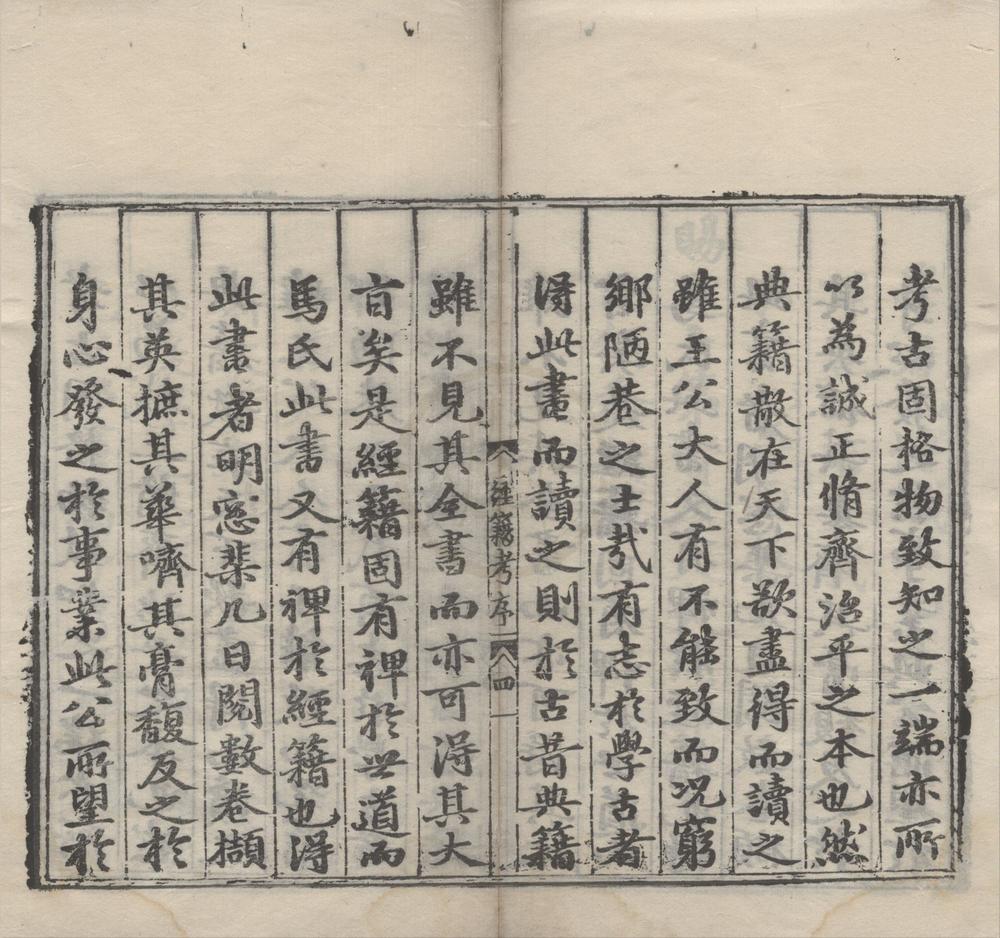 考古固格物致知之一端亦所
以為誠正脩齊治平之本也然
典籍散在天下欲盡得而讀之
雖王公大人有不能致而况窮
鄉陋巷之士哉有志於學古者
得此書而讀之則於古昔典籍
經籍考序 四
雖不見其全書而亦可得其大
㫖矣是經籍固有裨於世道而
馬氏此書又有裨於經籍也得
此書者明窓棐几日閱數卷擷
其英摭其華嚌其膏馥反之於
身心發之於事業此公所望於